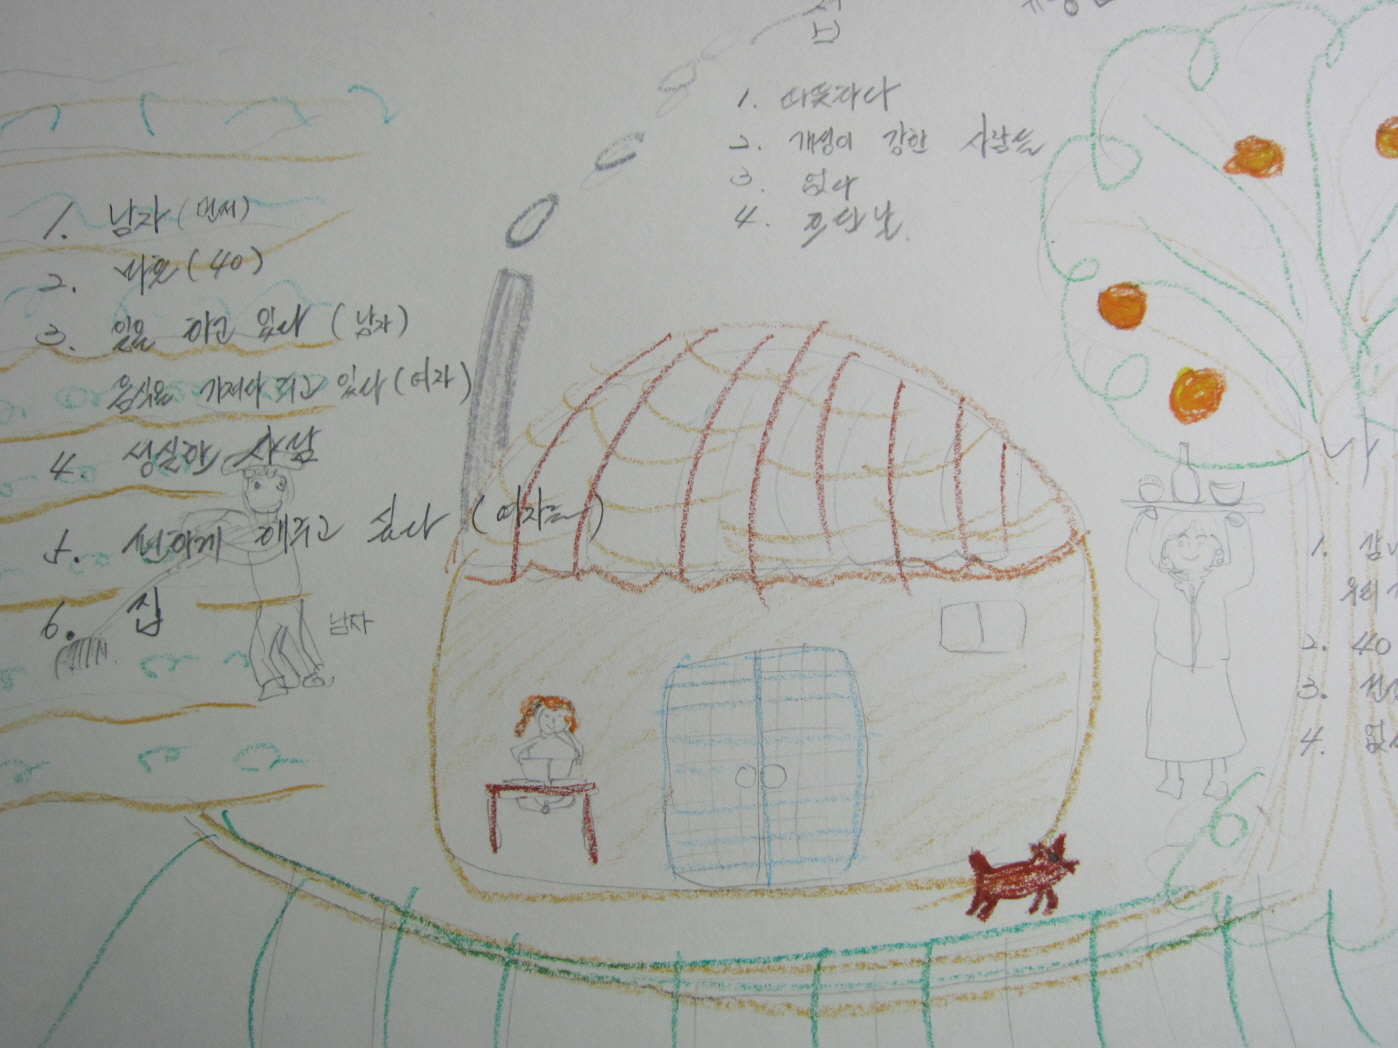 1. 따뜻하다
2. 개성이 강한 사람들
3. 없다
4. 흐린 날
1. 남자 (먼저)
2. 마흔 (40)
3. 일을 하고 있다 (남자)
음식을 가져다 주고 있다 (여자)
4. 성실한 사람
5. 선하게 해주고 싶다 (여자는)
6. 집
남자
나
1.
우리
2. 40
3.
4.